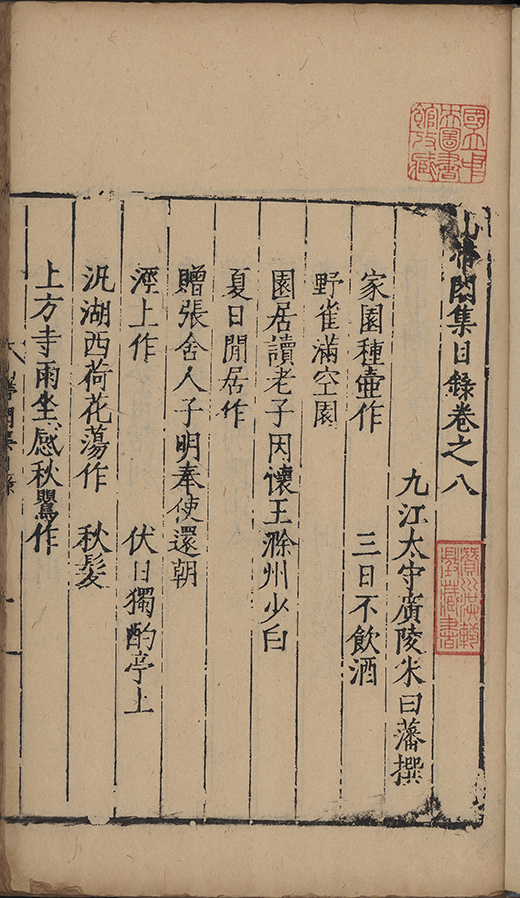 國立中央圖書館收藏
山帶閣集目錄卷之八
九江太守廣陵朱曰藩撰
家園種壺作　三日不飲酒
野雀滿空園
園居讀老子因懷王滁州少白
夏日閒居作
贈張舍人子明奉使還朝
涇上作　伏日獨酌亭上
汎湖西荷花蕩作　秋髮
上方寺雨坐感秋鸎作